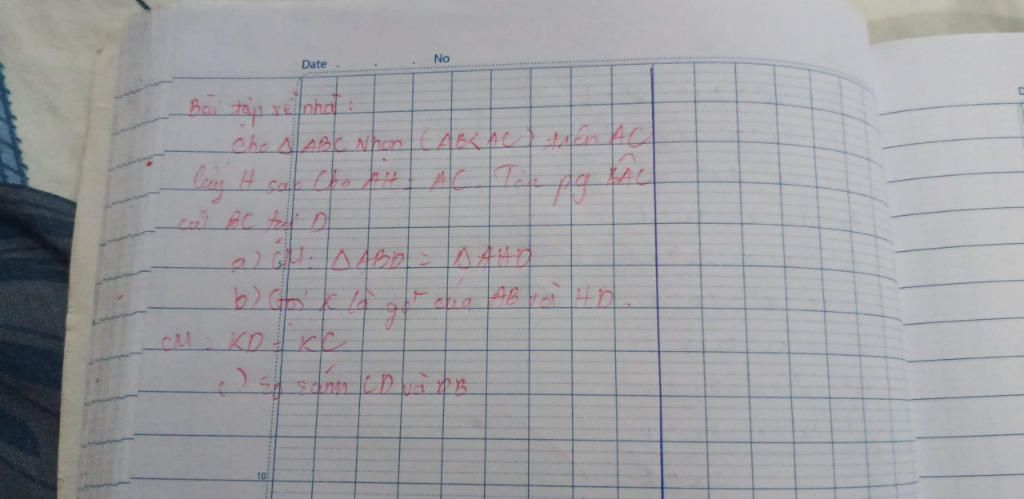 Date . . . No
Bài tập về nhà :
Cho Δ ABC Nhọn ( AB < AC ) trên AC
lấy H sao Cho AH = AC. Tia pg BÂC
cắt BC tại D
a) CM : Δ ABD = Δ AHD
b) Gọi K là gđ của AB với HD .
CM : KD = KC
c) so sánh CD và DB
10
D